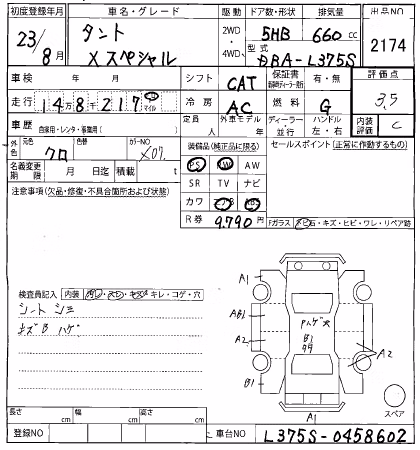 初度登録年月
車名・グレード
駆動
ドア数・形状
排気量
出品NO
23/8月
タント
Xスペシャル
2WD・4WD
5HB
660cc
型式
DBA-L375S
2174
車検 年 月
シフト
CAT
保証書
有・無
評価点
走行
148217
マイル
冷房
AC
燃料
G
3.5
車歴
自家用・レンタ・事業用( )
定員 人
外車モデル 年
ディーラー・並行
ハンドル
左・右
内装評価
C
外色
元色
クロ
色替
カラーNO
X07
装備品(純正品に限る)
セールスポイント(正常に作動するもの)
PS
PW
AW
名義変更期限
月 日迄
積載 t
SR
TV
ナビ
注意事項(欠品・修復・不具合箇所および状態)
カワ
エアB
ABS
R券
9.790円
Fガラス
トビ石・キズ・ヒビ・ワレ・リペア跡
検査員記入
内装
ヨゴレ・スレ・キズ・キレ・コゲ・穴
シートシミ
キズB ハゲ
A1
AB1
A2
B1
Pハゲ大
B1
A2
A1
スペア
長さ cm
幅 cm
高さ cm
登録NO
車台NO
L375S-0458602